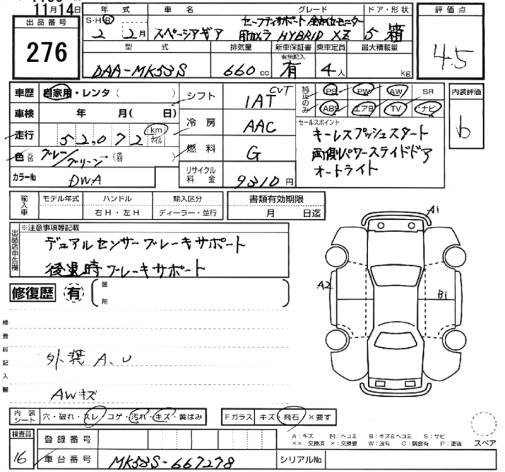 11月14日
出品番号
276
年式 車名 グレード ドア・形状
S・H・R 2年 2月 スペーシアギア セーフティサポート 全方位モニター
前カメラ HYBRID XZ 5 箱
型式 排気量 新車保証書 乗車定員 最大積載量
有・無記入
DAA-MK53S 660cc 有 4人 kg
評価点
4.5
車歴 自家用・レンタ( )
車検 年 月( 日)
走行 52,072 km マイル
色 グレー/グリーン
カラーNo DWA
シフト CVT IAT
冷房 AAC
燃料 G
リサイクル料金 9310円
純正のみ PS PW AW SR
ABS エアB TV ナビ
セールスポイント
キーレスプッシュスタート
両側パワースライドドア
オートライト
内装評価
b
輸入車 モデル年式 ハンドル 輸入区分 書類有効期限
年 右H・左H ディーラー・並行 月 日迄
出品店申告欄 ※注意事項等記載
デュアルセンサーブレーキサポート
後退時ブレーキサポート
修復歴 有 箇所
A1
A2
B1
検査員記入欄
外装 A、U
AWキズ
内装シート 穴・破れ・スレ コゲ・汚れ・キズ・黄ばみ Fガラス キズ・飛石・×要す
A:キズ M:ヘコミ B:キズ&ヘコミ S:サビ
スペア
検査員 16
登録番号
車台番号 MK53S-667278 シリアルNo